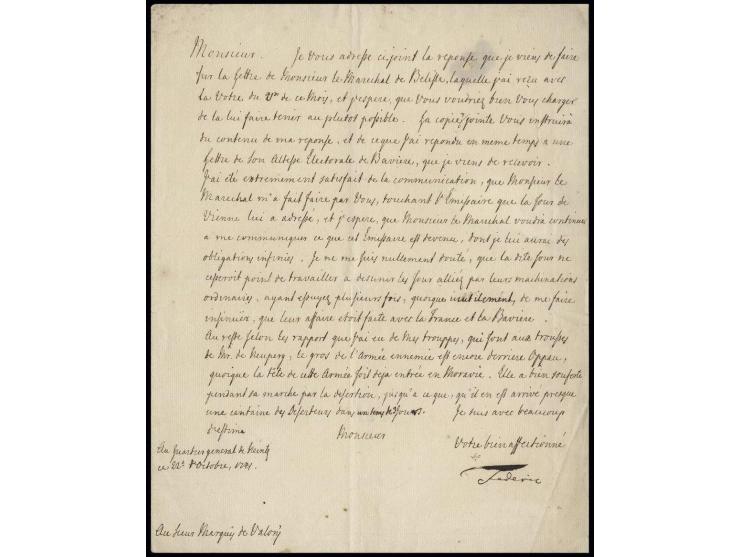 Monsieur. Je vous adresse cijoint la reponse que je viens de faire
sur la Lettre de Monsieur le Marechal de Belisle, laquelle j'ai reçu avec
la Votre du de ce Mois, et j'espere, que Vous voudriez bien Vous charger
de la lui faire tenir au plutot possible. La copie jointe Vous instruira
du contenu de ma reponse, et de ceque j'ai repondu en meme temps a une
Lettre de Son Altesse Electorale de Baviere, que je viens de recevoir.
J'ai été extremement satisfait de la communication, que Monsieur le
Marechal m'a fait faire par Vous, touchant l'Emissaire que la Cour de
Vienne lui a adressé, et j'espere, que Monsieur le Marechal voudra continuer
a me communiquer ce que cet Emissaire est devenu, dont je lui aurai des
obligations infinies. Je ne me suis nullement douté, que la dite Cour ne
cesseroit point de travailler a desunir les Cour alliez par leurs machinations
ordinaires, ayant essuyez plusieurs fois, quoique inutilement, de me faire
insinuer, que leur affaire etoit faite avec la France et la Baviere.
Au reste selon les rapport que j'ai eu de Mes trouppes, qui sont aux trousses
de Mr. de Neuperg, le gros de l'Armée ennemie est encore derriere Oppau,
quoique la tête de cette Armée soit deja entrée en Moravie. Elle a bien souferte
pendant sa marche par la desertion, jusqu'a ce que, qu'il en est arrivé presque
une centaine des Deserteurs dans un tems de Jours. Je suis avec beaucoup
d'estime
Monsieur
Votre bien affectionné
Au Quartier general de Neintz
ce 22e d'Octobre, 1741.
Federic
Au Sieur Marquis de Valory